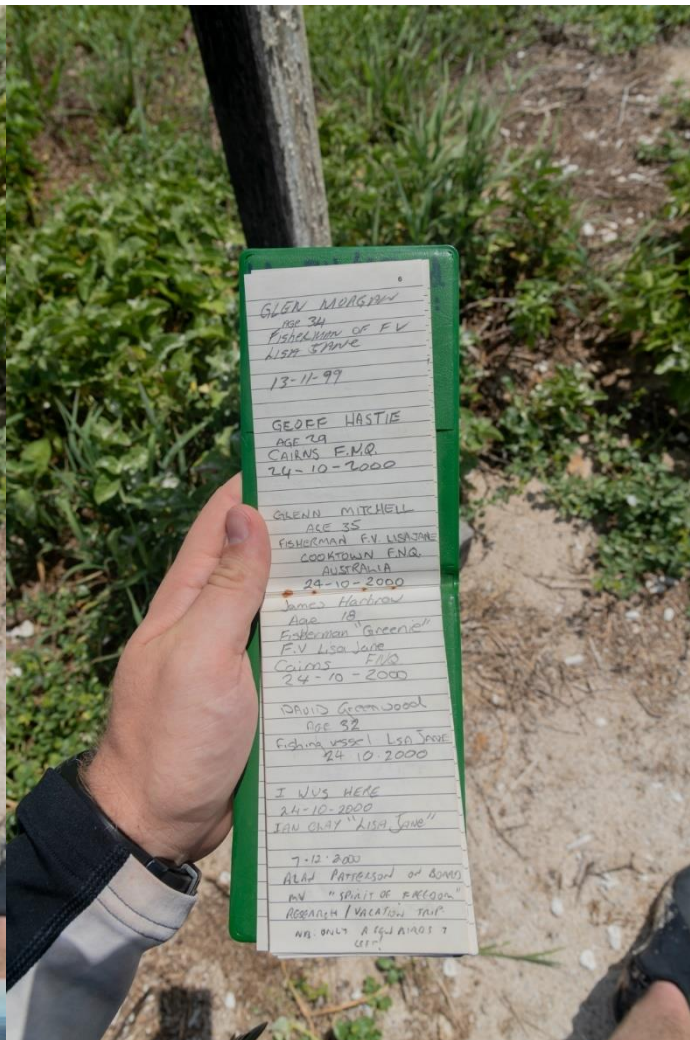 GLEN MORGAN
AGE 34
FISHERMAN OF FV
LISA JANE
13-11-99
GEOFF HASTIE
AGE 29
CAIRNS F.N.Q.
24-10-2000
GLENN MITCHELL
AGE 35
FISHERMAN F.V. LISA JANE
COOKTOWN F.N.Q.
AUSTRALIA
24-10-2000
James
Age 18
Fisherman "Greenie"
F.V Lisa Jane
Cairns FNQ
24-10-2000
DAVID Greenwood
Age 32
Fishing vessel LISA JANE
24 10 2000
I WUS HERE
24-10-2000
IAN OLAY "LISA JANE"
7-12-2000
ALAN PATTERSON ON BOARD
MV "SPIRIT OF FREEDOM"
RESEARCH / VACATION TRIP
NB. ONLY A FEW BIRDS
LEFT!